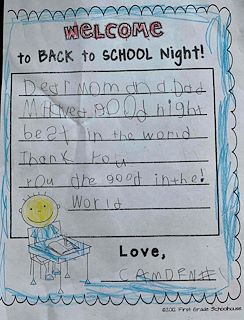 WELCOME
to BACK to SCHOOL Night!
Dear Mom and Dad
good night
best in the world
Thank You
You are good in the!
World
Love,
CAMDEN#1
©2012, First Grade Schoolhouse